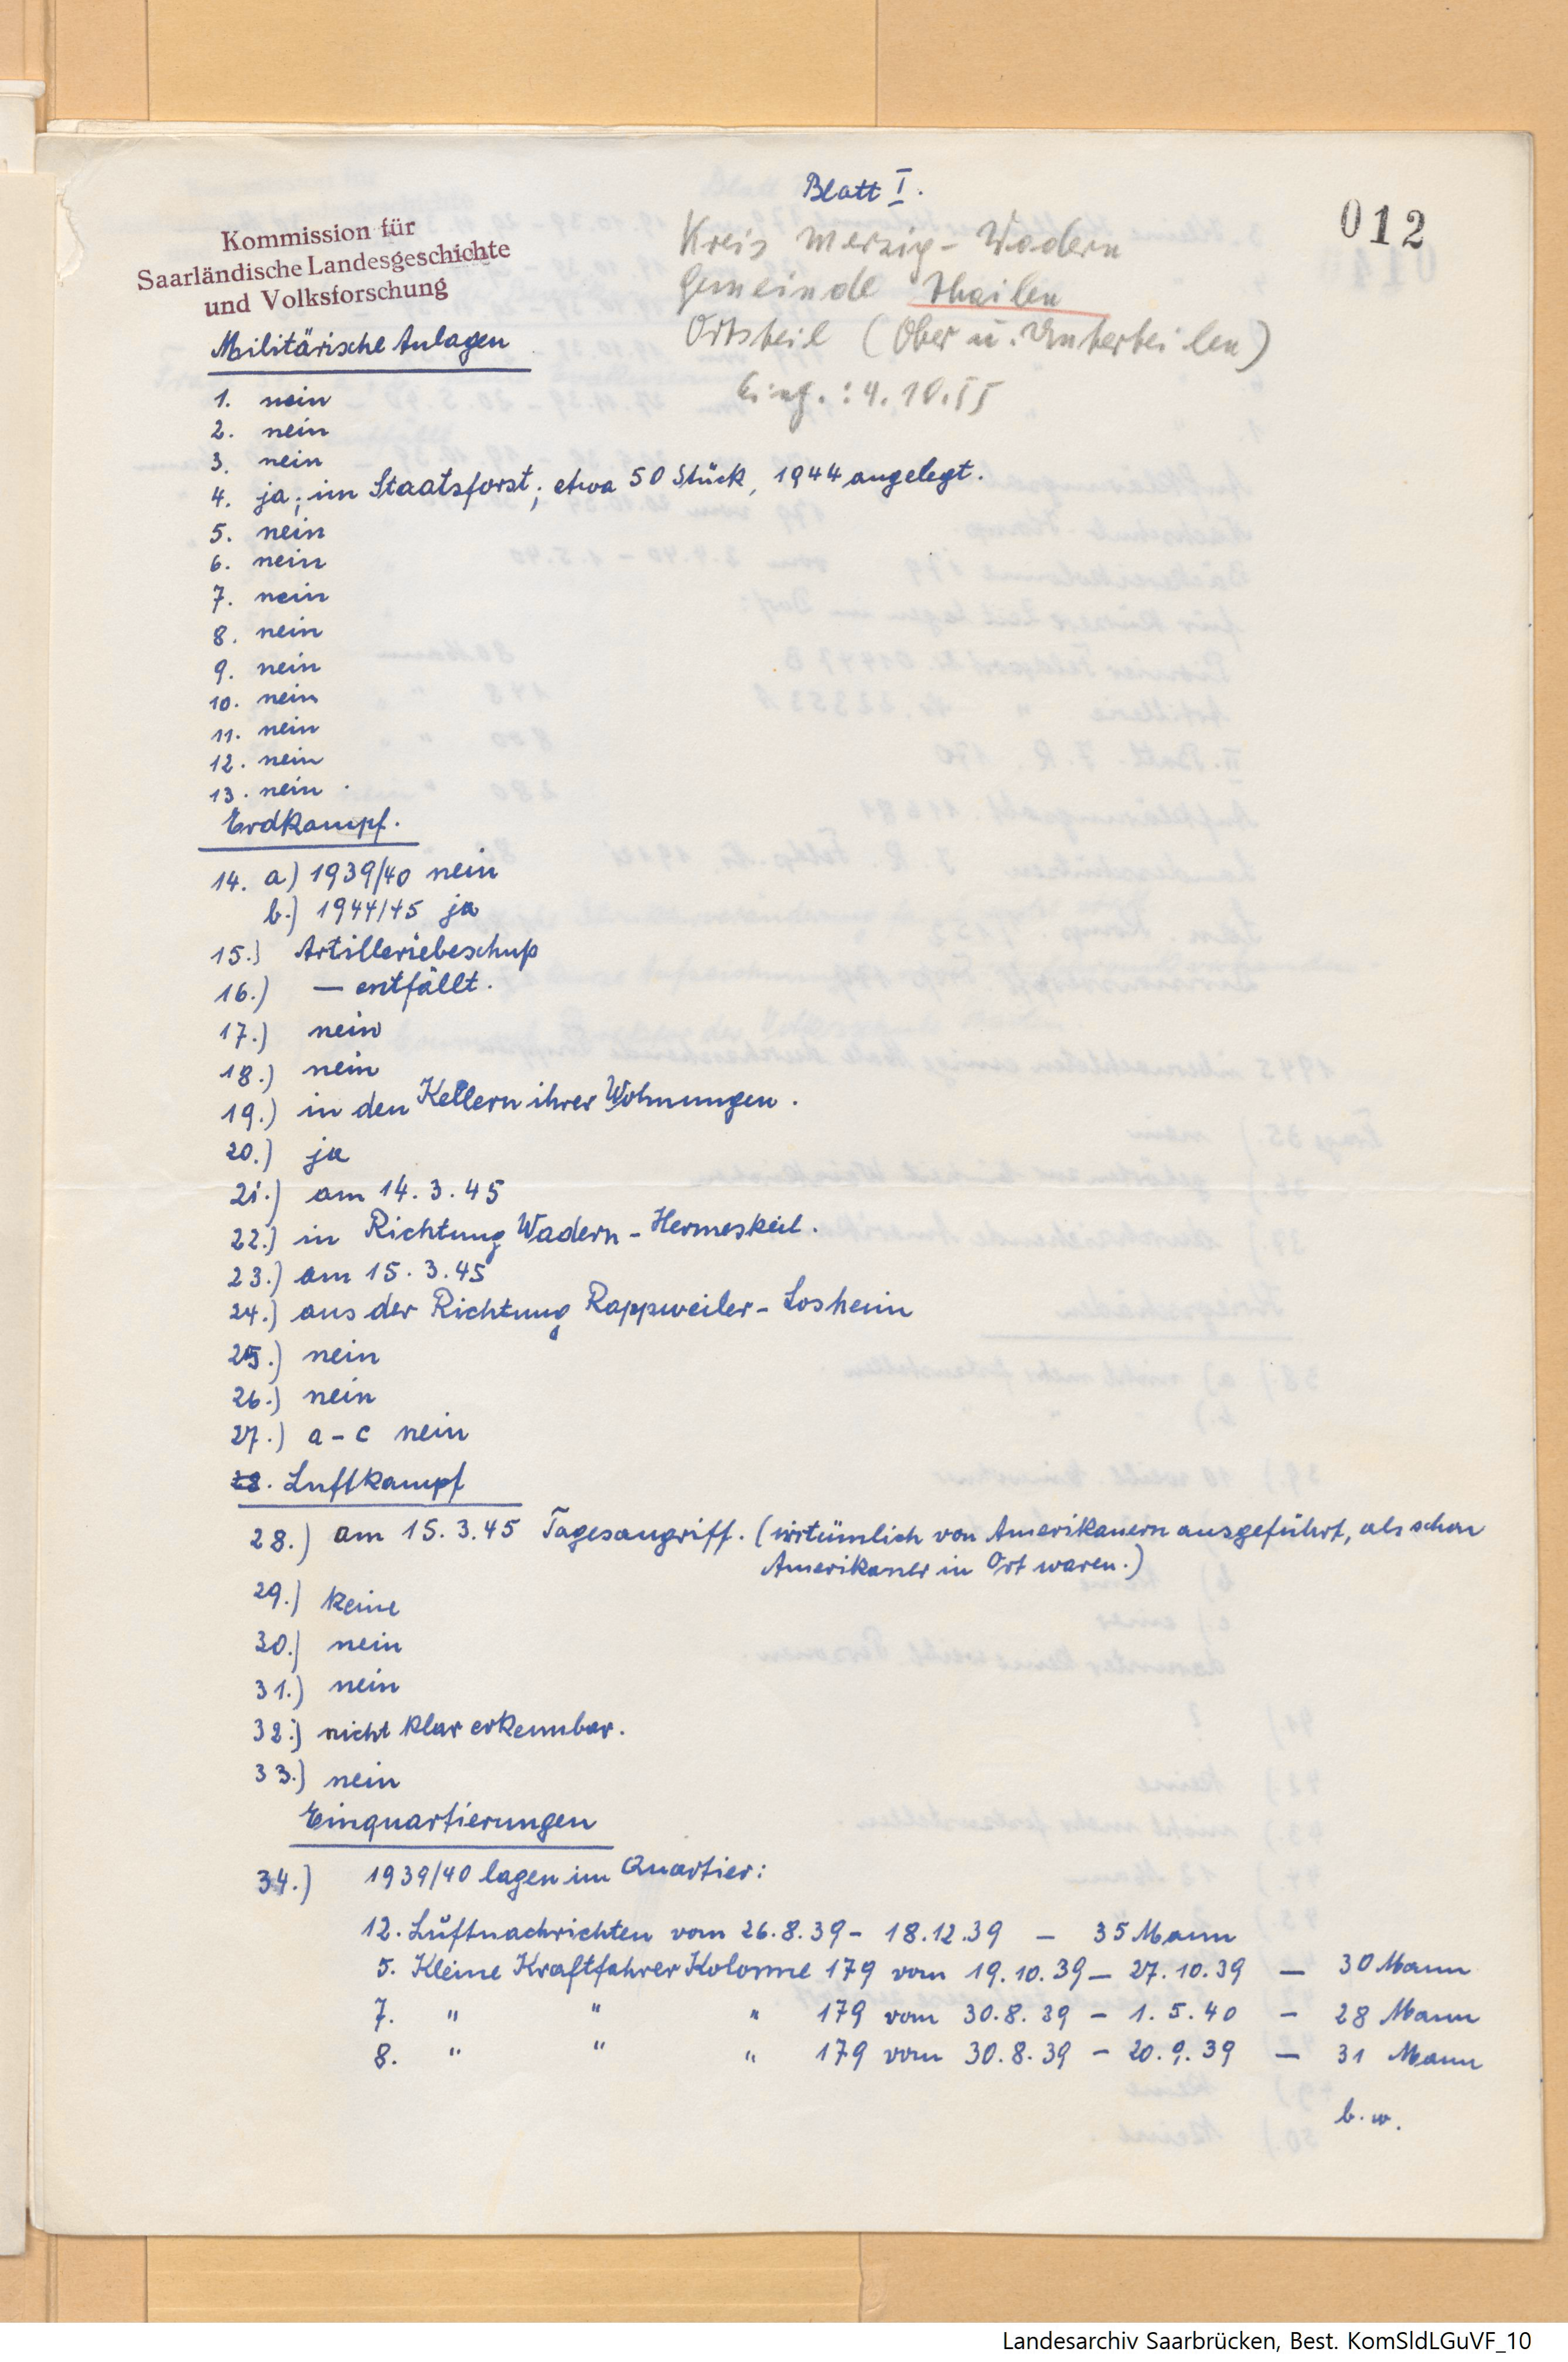 Blatt I.
012
Kommission für
Saarländische Landesgeschichte
und Volksforschung
Kreis Merzig-Wadern
Gemeinde Thailen
Ortsteil (Ober u. Unterteilen)
Eing.: 4.10.55
Militärische Anlagen
1. nein
2. nein
3. nein
4. ja; im Staatsforst; etwa 50 Stück, 1944 angelegt.
5. nein
6. nein
7. nein
8. nein
9. nein
10. nein
11. nein
12. nein
13. nein
Erdkampf.
14. a) 1939/40 nein
b.) 1944/45 ja
15.) Artilleriebeschuß
16.) — entfällt.
17.) nein
18.) nein
19.) in den Kellern ihrer Wohnungen.
20.) ja
21.) am 14.3.45
22.) in Richtung Wadern - Hermeskeil.
23.) am 15.3.45
24.) aus der Richtung Rappweiler - Losheim
25.) nein
26.) nein
27.) a - c nein
28. Luftkampf
28.) am 15.3.45 Tagesangriff. (irrtümlich von Amerikanern ausgeführt, als schon
Amerikaner in Ort waren.)
29.) keine
30.) nein
31.) nein
32.) nicht klar erkennbar.
33.) nein
Einquartierungen
34.) 1939/40 lagen im Quartier:
12. Luftnachrichten vom 26.8.39 - 18.12.39 — 35 Mann
5. Kleine Kraftfahrer Kolonne 179 vom 19.10.39 — 27.10.39 — 30 Mann
7. " " " 179 vom 30.8.39 - 1.5.40 - 28 Mann
8. " " " 179 vom 30.8.39 - 20.9.39 — 31 Mann
b.w.
Landesarchiv Saarbrücken, Best. KomSldLGuVF_10